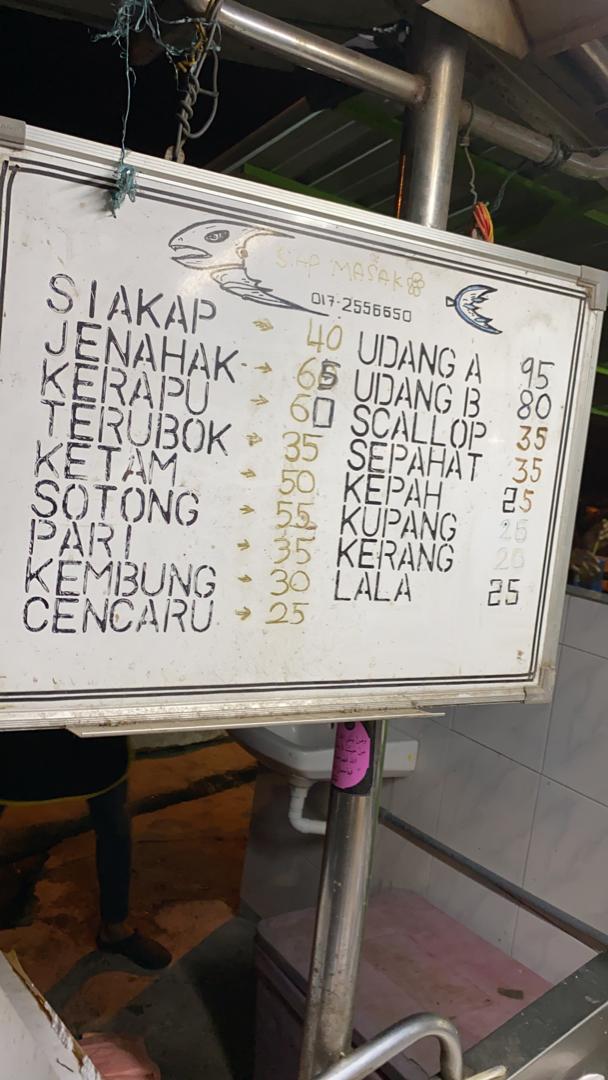 SIAP MASAK
017-2556650
SIAKAP → 40
JENAHAK → 65
KERAPU → 60
TERUBOK → 35
KETAM → 50
SOTONG → 55
PARI → 35
KEMBUNG → 30
CENCARU → 25
UDANG A 95
UDANG B 80
SCALLOP 35
SEPAHAT 35
KEPAH 25
KUPANG 25
KERANG 20
LALA 25